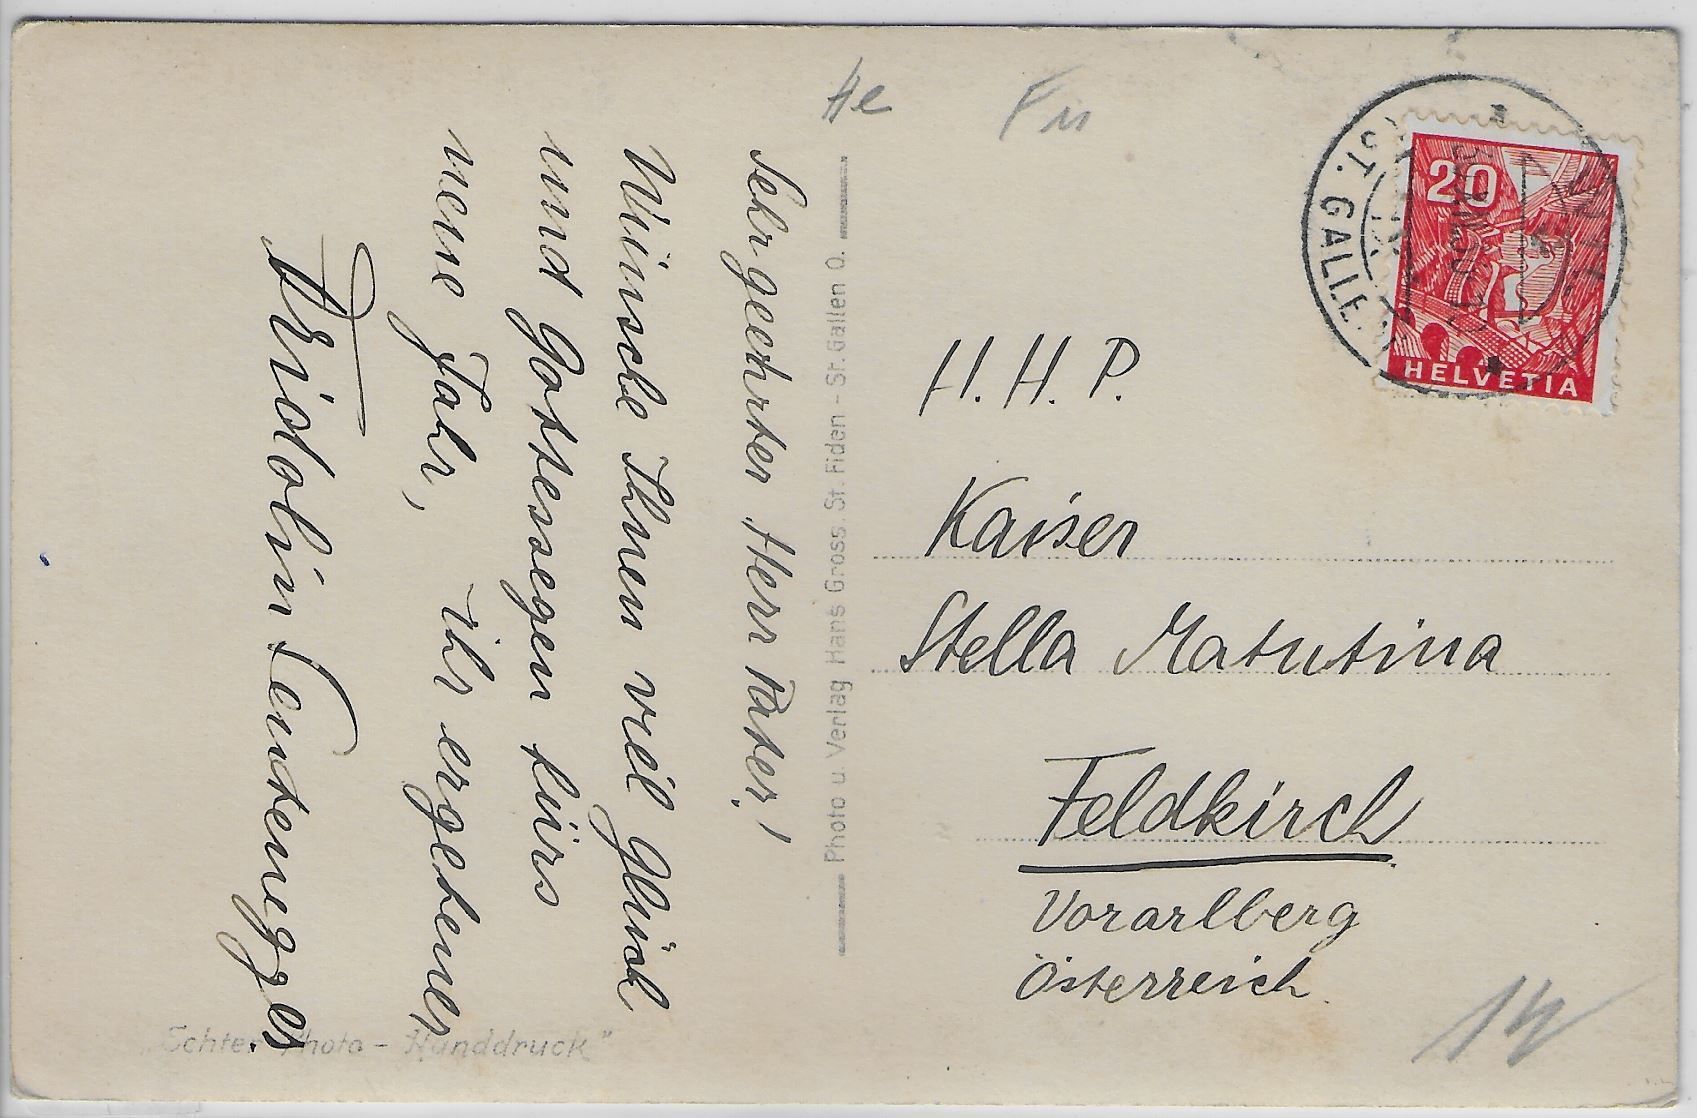 Sehr geehrter Herr Pater!
Wünsche Ihnen viel Glück
und Gottessegen fürs
neue Jahr,
Ihr ergebener
Fridolin
Photo u. Verlag Hans Gross, St. Fiden - St. Gallen O.
"Echter Photo - Handdruck"
He
Fr
20
HELVETIA
ST. GALLEN
H. H. P.
Kaiser
Stella Matutina
Feldkirch
Vorarlberg
Österreich